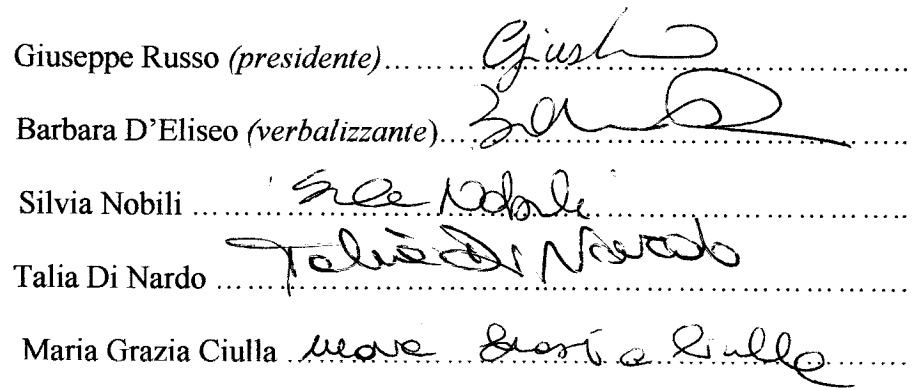 Giuseppe Russo (presidente)........
Barbara D'Eliseo (verbalizzante)....
Silvia Nobili ........ Nobili
Talia Di Nardo ........ Talia Di Nardo
Maria Grazia Ciulla Maria Grazia Ciulla